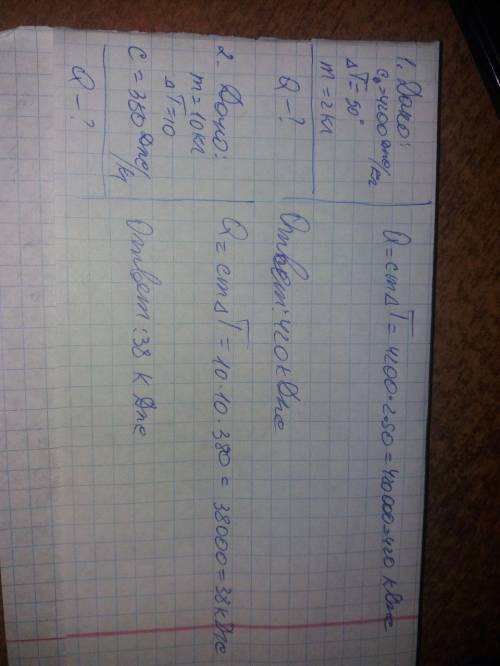 1. Дано:
C₀=4200 Дж/кг
ΔT=50°
m=2кг
Q-?
Q=cmΔT=4200·2·50=420000=420 кДж
Ответ: 420 кДж
2. Дано:
m=10кг
ΔT=10
C=380 Дж/кг
Q-?
Q=cmΔT=10·10·380=38000=38кДж
Ответ: 38 кДж